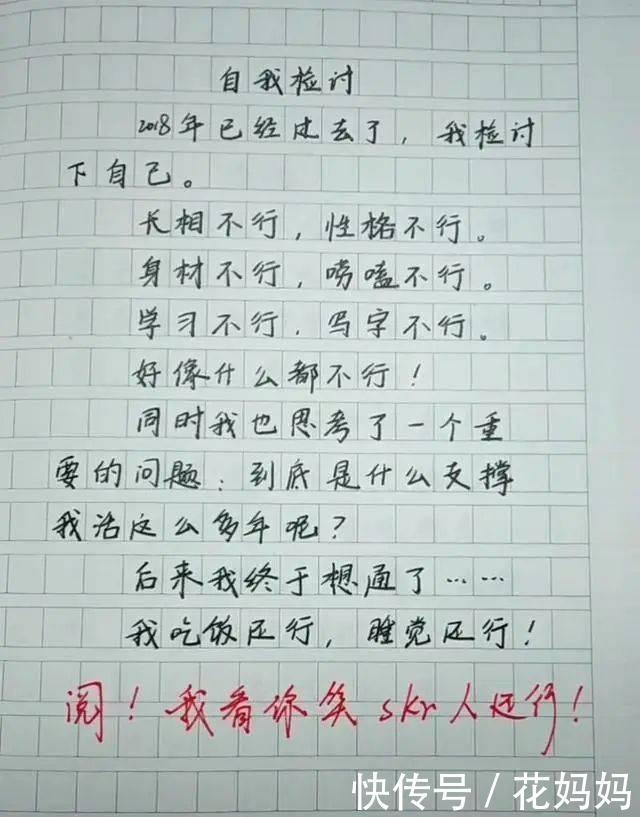 自我检讨
2018年已经过去了，我检讨
下自己。
长相不行，性格不行。
身材不行，唠嗑不行。
学习不行，写字不行。
好像什么都不行！
同时我也思考了一个重
要的问题：到底是什么支撑
我活这么多年呢？
后来我终于想通了……
我吃饭还行，睡觉还行！
阅！我看你笑skr人还行！
快传号/花妈妈